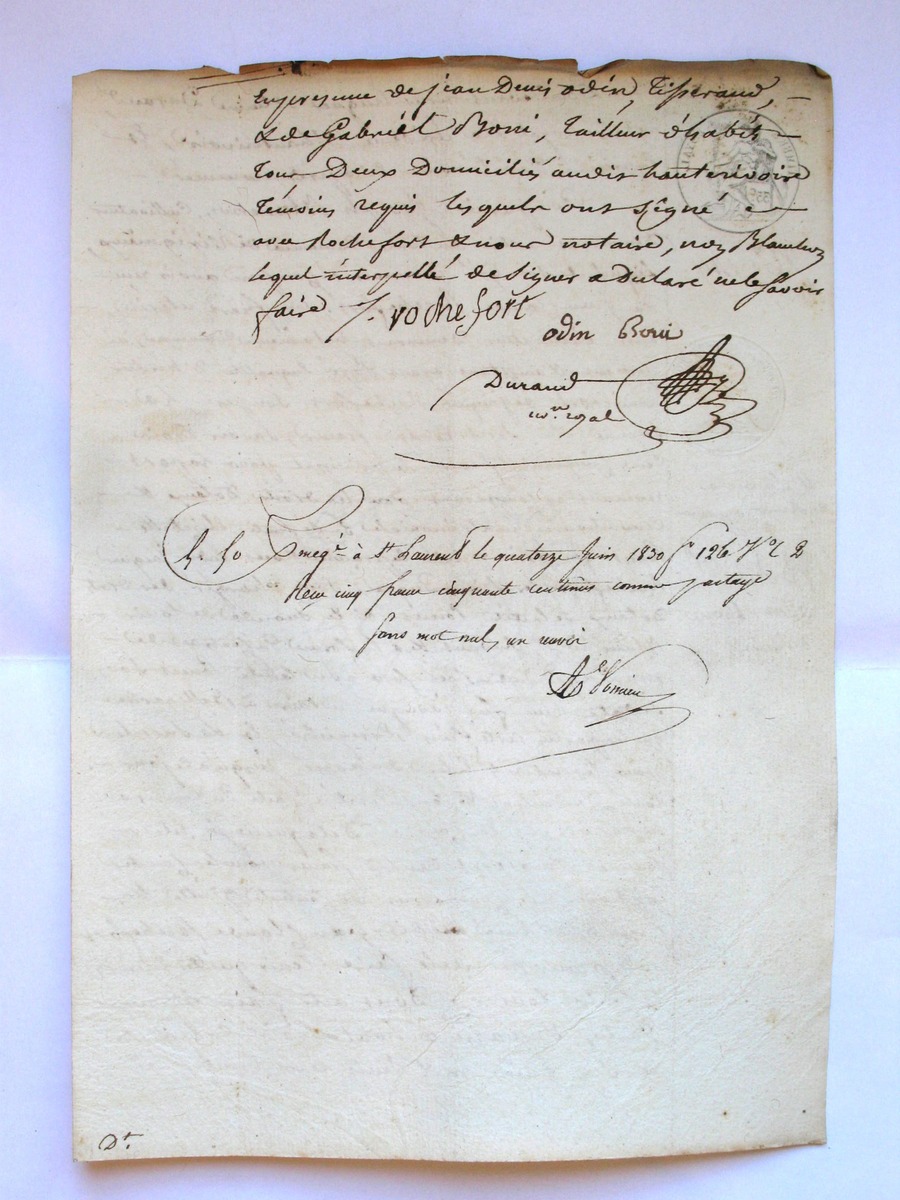 En presence de jean Denis odin, Tisserand,
& de Gabriel Boni, Tailleur d'habits
tous Deux Domiciliés audit hauterivoire
Témoins requis lesquels ont signé
avec Rochefort & nous notaire, non Blanchon
lequel interpellé de signer a Declaré ne le savoir
faire J. rochefort
odin Boni
Durand
nore. royal
5. 50 Enregé. à St Laurent le quatorze Juin 1830 fo 126 Vo C 2
Reçu cinq francs cinquante centimes comme partage
sans mot nul, un renvoi
Dt.